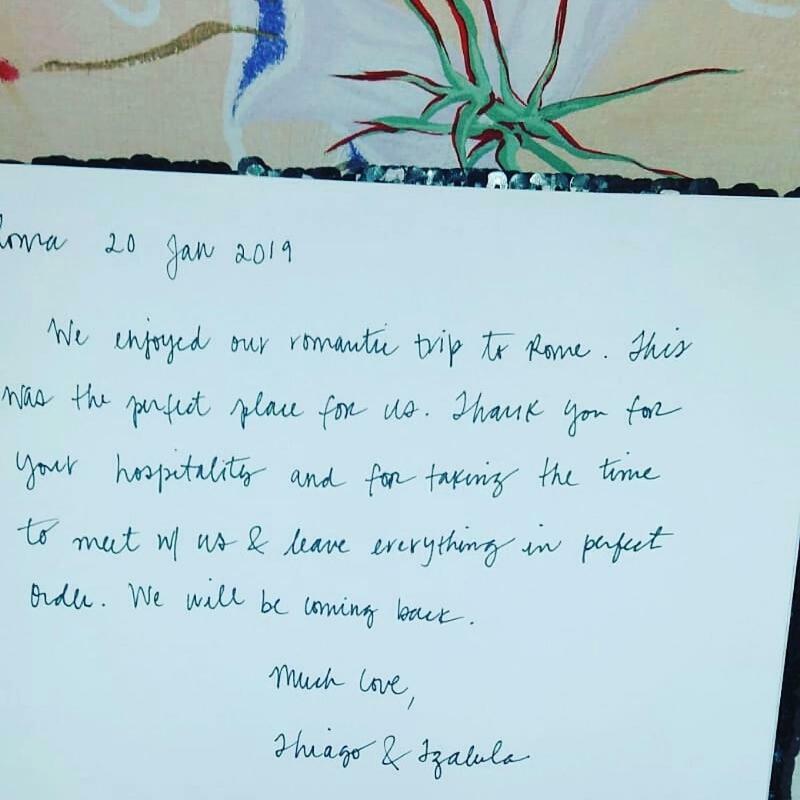 Roma 20 Jan 2019
We enjoyed our romantic trip to Rome. This
was the perfect place for us. Thank you for
your hospitality and for taking the time
to meet w/ us & leave everything in perfect
order. We will be coming back.
Much love,
Thiago & Izabela